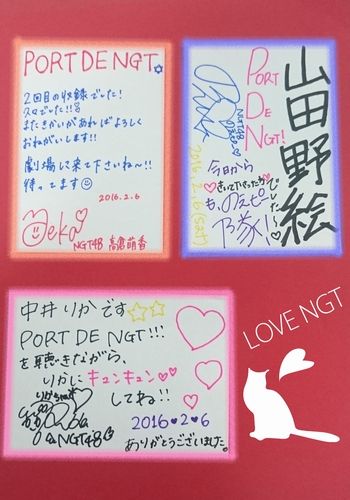 PORT DE NGT
2回目の収録でした!
久々でした!!
またきかいがあればよろしく
おねがいします!!
劇場に来て下さいね~!!
待ってます
2016.2.6
Moeka
NGT48 高倉萌香
PORT
DE
NGT!
山田野絵
NGT48
のえぴー
2016.2.6(sat)
今日から
きいて下さった方でした〜
も、のえピー
乃隊!
中井りかです
PORT DE NGT!!!
を聴きながら、
りかにキュンキュン
してね!!
NGT48
2016♥2♥6
ありがとうございました。
LOVE NGT